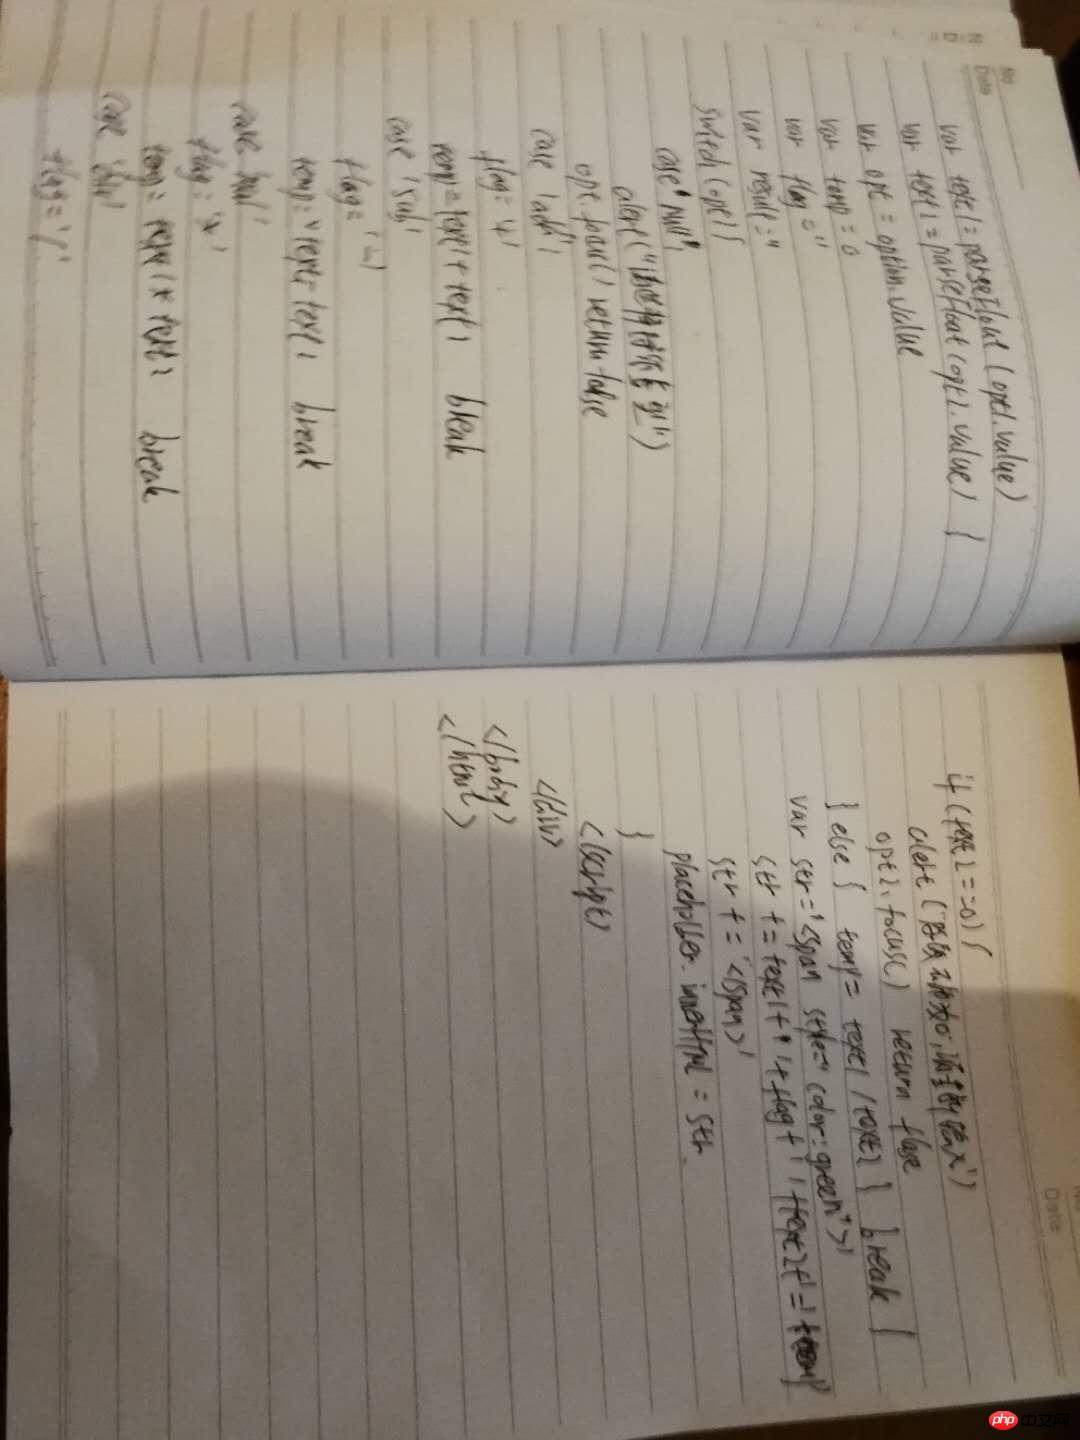 No
Date
var text1 = parseFloat (opt1.value)
var text2 = parseFloat (opt2.value) {
var opt = option.value
var temp = 0
var flag = ''
var result = ''
switch (opt) {
case 'null'
alert ("请选择
opt.focus() return false
case 'add'
flag = '+'
temp = text1 + text2 break
case 'sub'
flag = '-'
temp = text1 - text2 break
case 'mul'
flag = 'x'
temp = text1 * text2 break
case 'div'
flag = '/'
if (text2 == 0) {
alert (
opt2.focus() return flase
} else { temp = text1 / text2 } break {
var str = '<span style=" color:green">'
str + = text1 + ' ' + flag + ' ' + text2 + ' = ' + temp
str + = '</span>'
placeholder. innerHtml = str
}
</script>
</div>
</body>
</html>
Date
php 中文网